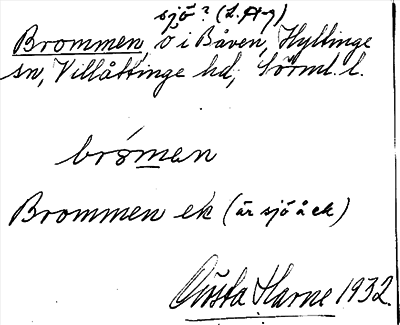 sjö? (L. H-g)
Brommen, ö i Båven, Hyltinge
sn, Villåttinge hd, Sörml. l.
brómen
Brommen ek (är sjö å ek)
Gösta Harne 1932.